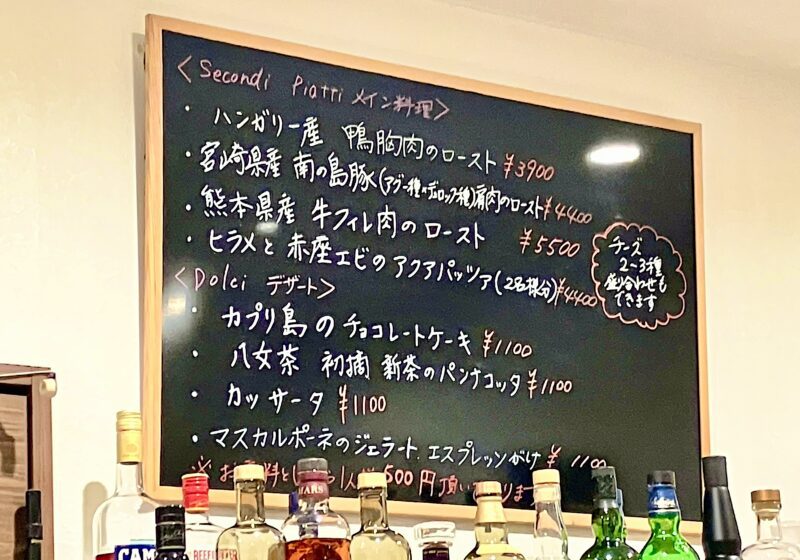 〈Secondi Piatti メイン料理〉
・ハンガリー産 鴨胸肉のロースト ¥3900
・宮崎県産 南の島豚(アグー種×デュロック種)肩肉のロースト ¥4400
・熊本県産 牛フィレ肉のロースト ¥5500
・ヒラメと赤座エビのアクアパッツァ(2名様分) ¥4400
チーズ
2~3種
盛り合わせも
できます
〈Dolci デザート〉
・カプリ島のチョコレートケーキ ¥1100
・八女茶 初摘 新茶のパンナコッタ ¥1100
・カッサータ ¥1100
・マスカルポーネのジェラート エスプレッソがけ ¥1100
※お 料と 1人様500円頂い ます
MARS
BEEFEATER